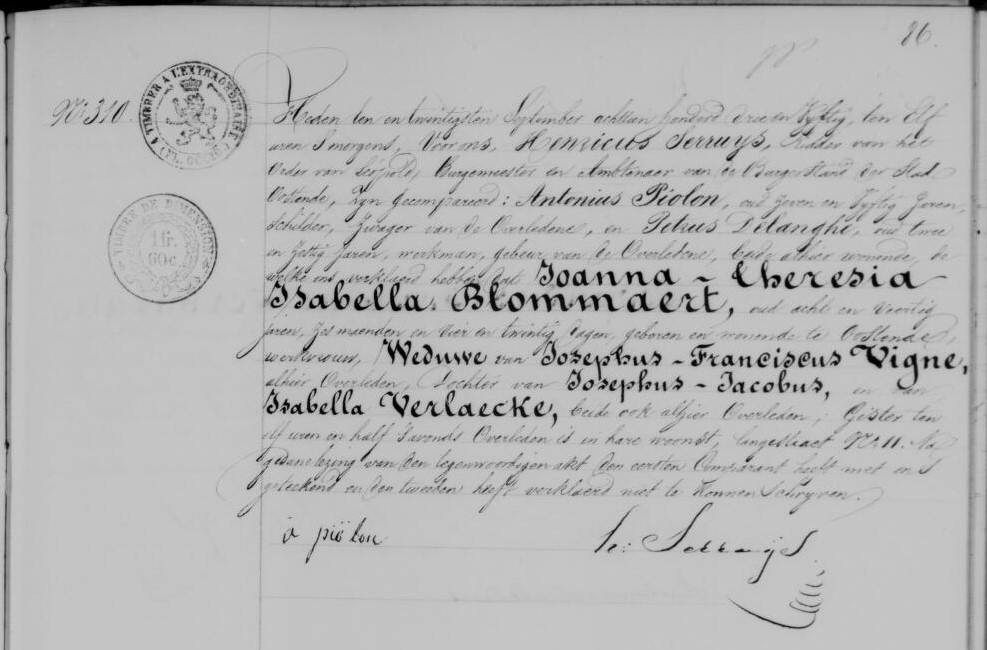 86.
N.º 310.
TIMBRER A L'EXTRAORDINAIRE
TIMBRE DE DIMENSION
1 fr.
60 c.
Heden een en twintigsten September achttien honderd drie en Vyftig, ten Elf
uren S'morgens, Voor ons, Henricus Serruys, Ridder van het
Order van Léopold, Burgemeester en Ambtenaer van de Burgerstand der Stad
Oostende, Zyn gecompareerd: Antonius Piolon, oud Zeven en Vyftig Jaren,
schilder, Zwager van de Overledene, en Petrus Delanghe, oud twee
en Zestig Jaren, werkman, gebuer van de Overledene, beide alhier wonende, de
welke ons verklaerd hebben dat Joanna - Theresia
Isabella Blommaert, oud acht en Veertig
Jaren, Zes maenden en Vier en twintig dagen, geboren en wonende te Oostende,
werkvrouw, Weduwe van Josephus - Franciscus Vigne,
alhier Overleden, Dochter van Josephus - Jacobus, en van
Isabella Verlaecke, beide ook alhier Overleden; Gister ten
elf uren en half S'avonds Overleden is in hare woonst, langestraet N.º 11. Na
gedane lezing van den tegenwoordigen akt den eersten Comparant heeft met ons
geteekend en den tweeden heeft verklaerd niet te Konnen Schryven.
a piölon
H: Serruys